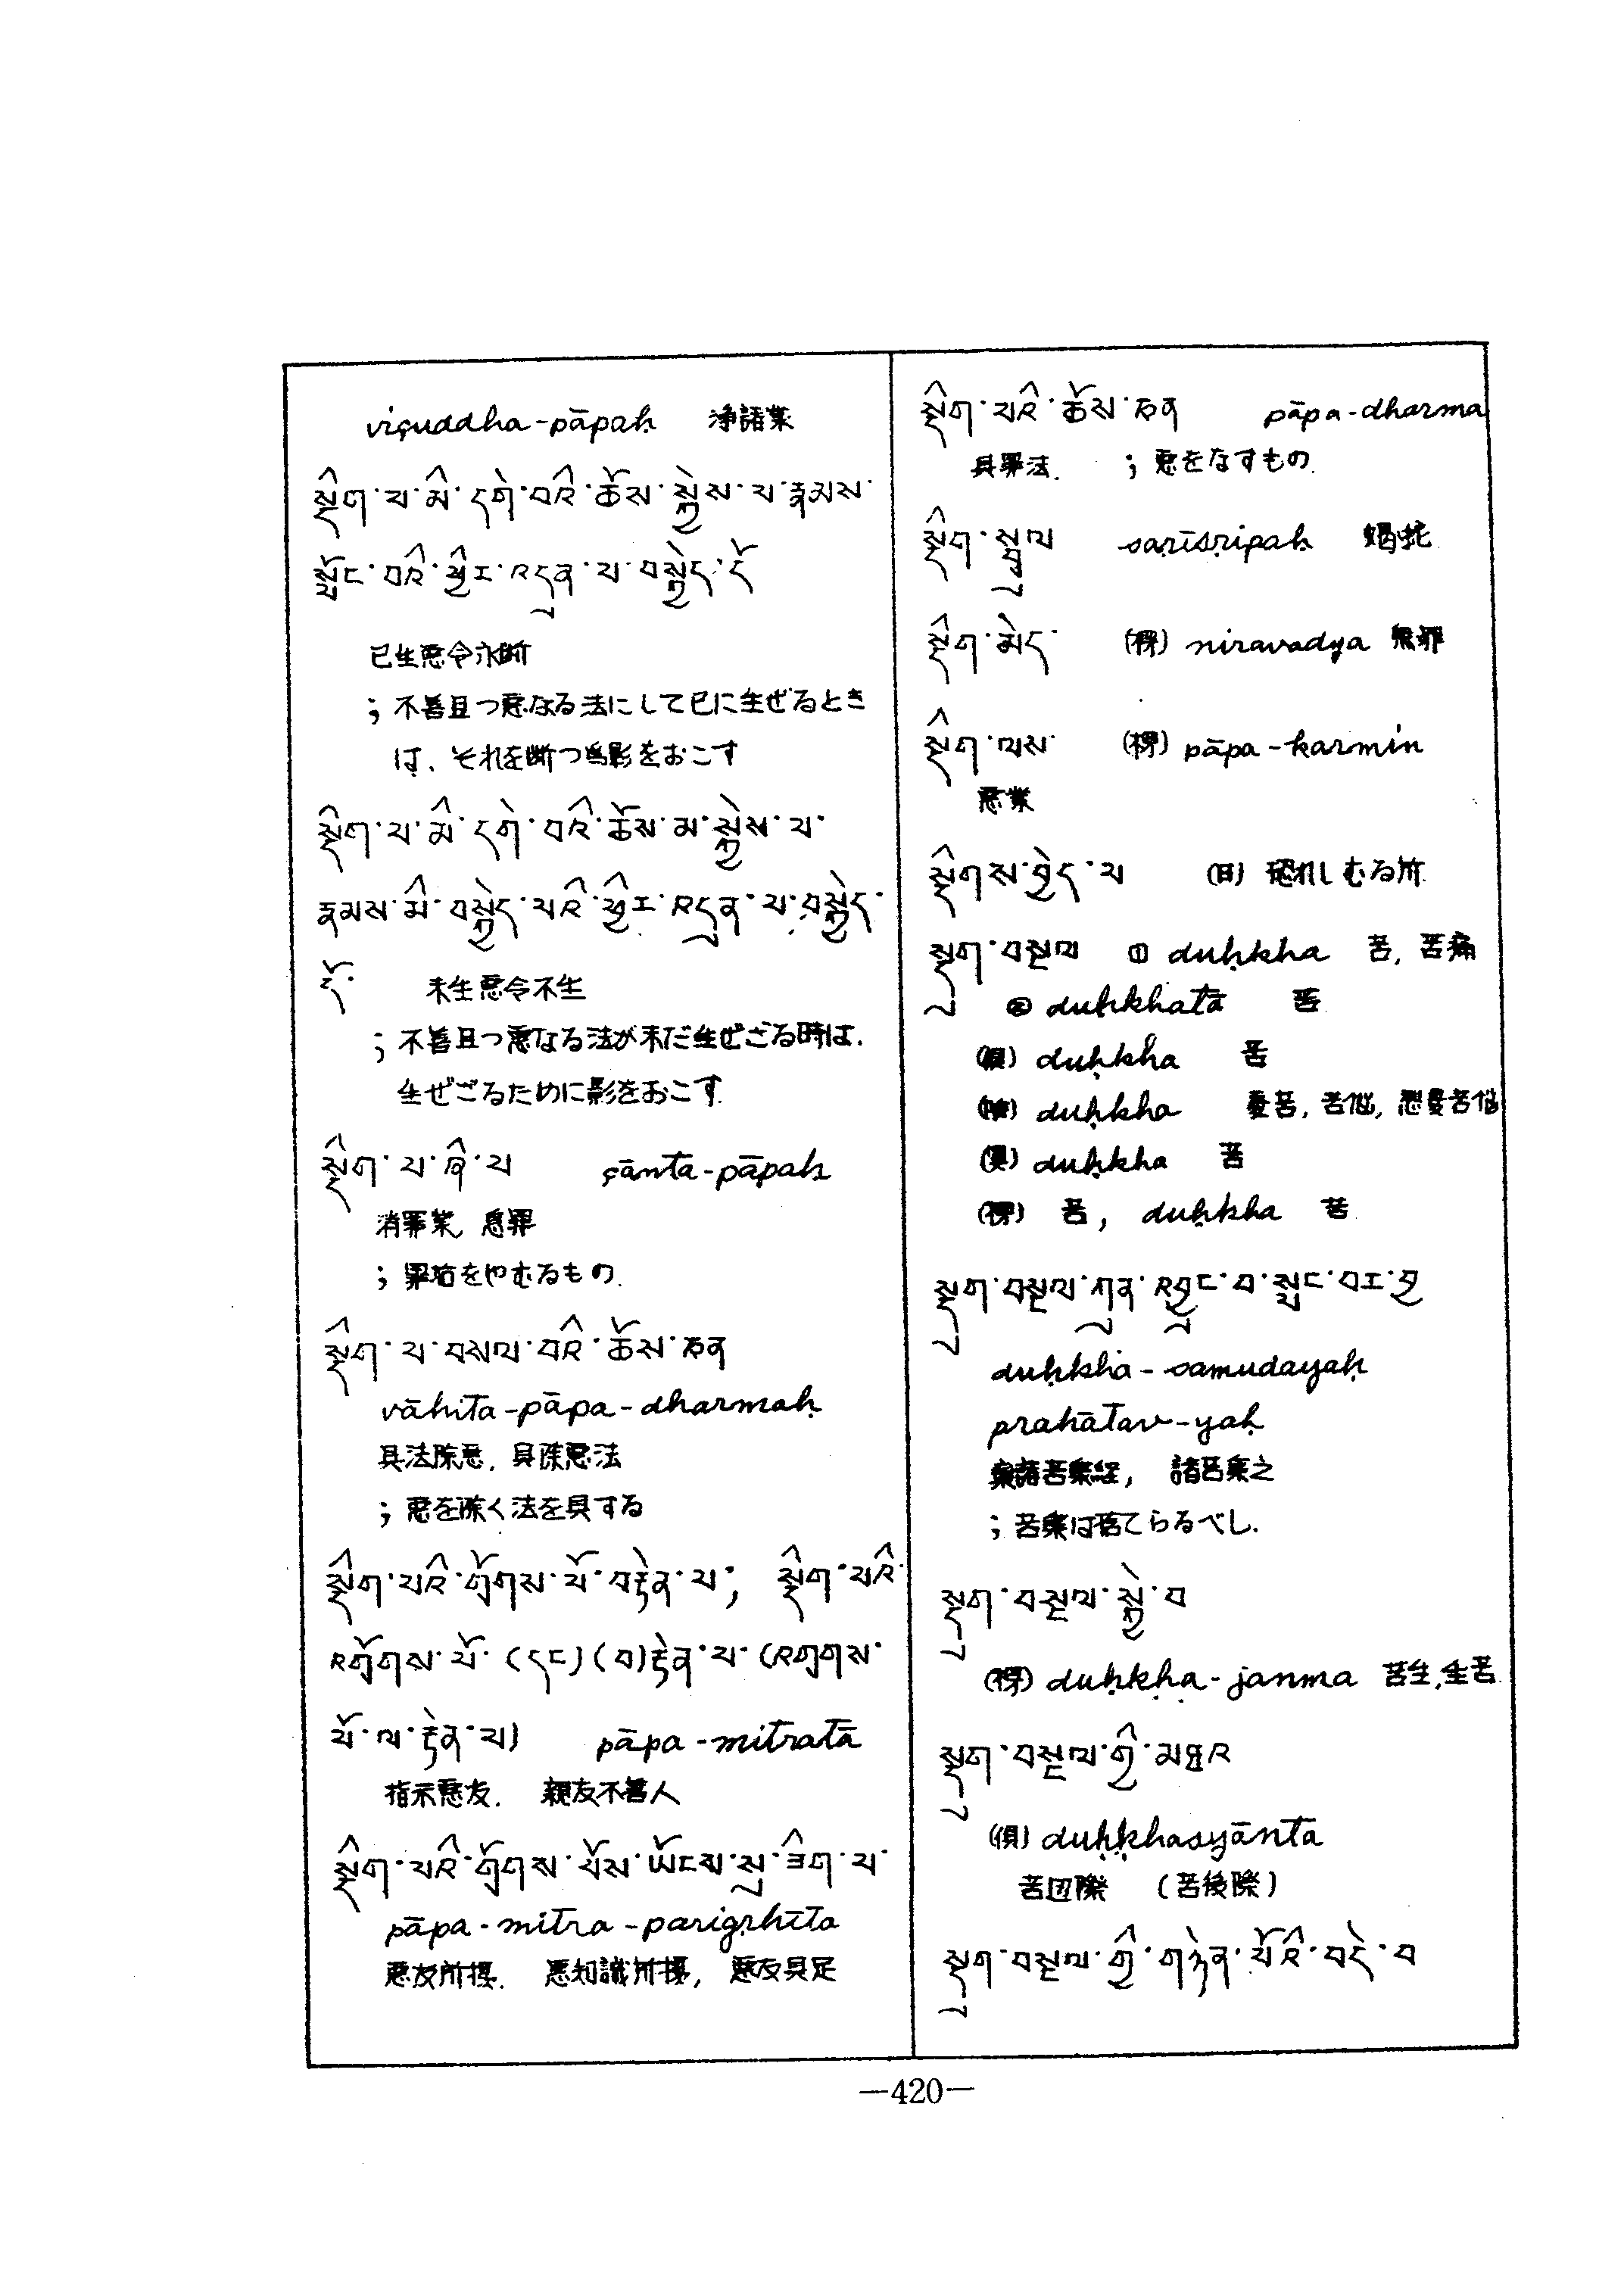 viçuddha-pāpaḥ 淨諸業
སྡིག་པ་མི་དགེ་བའི་ཆོས་སྐྱེས་པ་རྣམས་
སྤོང་བའི་ཕྱིར་འདུན་པ་བསྐྱེད་དོ
已生悪令永断
；不善且つ悪なる法にして已に生ぜるとき
は、それを断つ為影をおこす
སྡིག་པ་མི་དགེ་བའི་ཆོས་མ་སྐྱེས་པ་
རྣམས་མི་བསྐྱེད་པའི་ཕྱིར་འདུན་པ་བསྐྱེད་
དོ་ 未生悪令不生
；不善且つ悪なる法が未だ生ぜざる時は.
生ぜざるために影をおこす.
སྡིག་པ་ཞི་པ çānta-pāpaḥ
消罪業, 息罪
； 罪垢をやむるもの.
སྡིག་པ་བསལ་བའི་ཆོས་ཅན
vāhita-pāpa-dharmaḥ
具法除悪, 具除悪法
；悪を除く法を具する
སྡིག་པའི་གྲོགས་པོ་བརྟེན་པ་; སྡིག་པའི་
འགྲོགས་པོ་(དང)(བ)རྟེན་པ་(འགྲགས་
པོ་ལ་རྟེན་པ) pāpa-mitratā
指示悪友. 親友不善人
སྡིག་པའི་གྲོགས་པོས་ཡོངས་སུ་ཟིག་པ་
pāpa-mitra-parigṛhīta
悪友所摂. 悪知識所摂, 悪友具足
སྡིག་པའི་ཆོས་ཅན pāpa-dharma
具罪法. ；悪をなすもの.
སྡིག་སྦྲུལ saṛīsṛipaḥ
སྡིག་མེད་ (梵) niravadya 無罪
སྡིག་ལས་ (梵) pāpa-karmin
悪業
སྡིགས་བྱེད་པ (目) 恐れしむる所
སྡུག་བསྔལ ① duḥkha 苦, 苦痛
② duḥkhatā 苦
(倶) duḥkha 苦
duḥkha 憂苦, 苦悩, 愁憂苦悩
duḥkha 苦
苦, duḥkha 苦
སྡུག་བསྔལ་ཀུན་འབྱུང་བ་སྤང་བར་བྱ
duḥkha-samudayaḥ
prahātav-yaḥ
諸苦集之
；苦集は捨てらるべし.
སྡུག་བསྔལ་སྐྱེ་བ
duḥkḥa-janma 苦生,生苦
སྡུག་བསྔལ་གྱི་མཐའ
(倶) duḥḳhasyānta
苦辺際 (苦後際)
སྡུག་བསྔལ་གྱི་གཉེན་པོའི་བདེ་བ
—420—